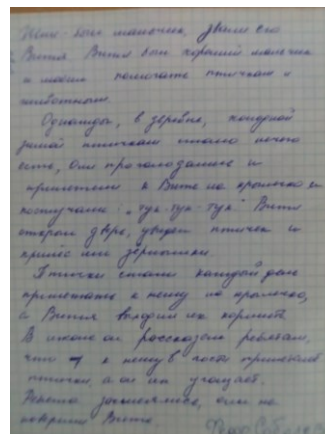 Жил-был мальчик, звали его
Витя. Витя был хороший мальчик
и любил помогать птичкам и
животным.
Однажды, в деревне, холодной
зимой птичкам стало нечего
есть, они проголодались и
прилетели к Вите на крылечко и
постучали: „тук-тук-тук" Витя
открыл дверь, увидел птичек и
принёс им зёрнышки.
Птички стали каждый день
прилетать к нему на крылечко,
а Витя выходил их кормить.
В школе он рассказал ребятам,
что к нему в гости прилетают
птички, а он их угощает.
Ребята засмеялись, они не
поверили Вите.